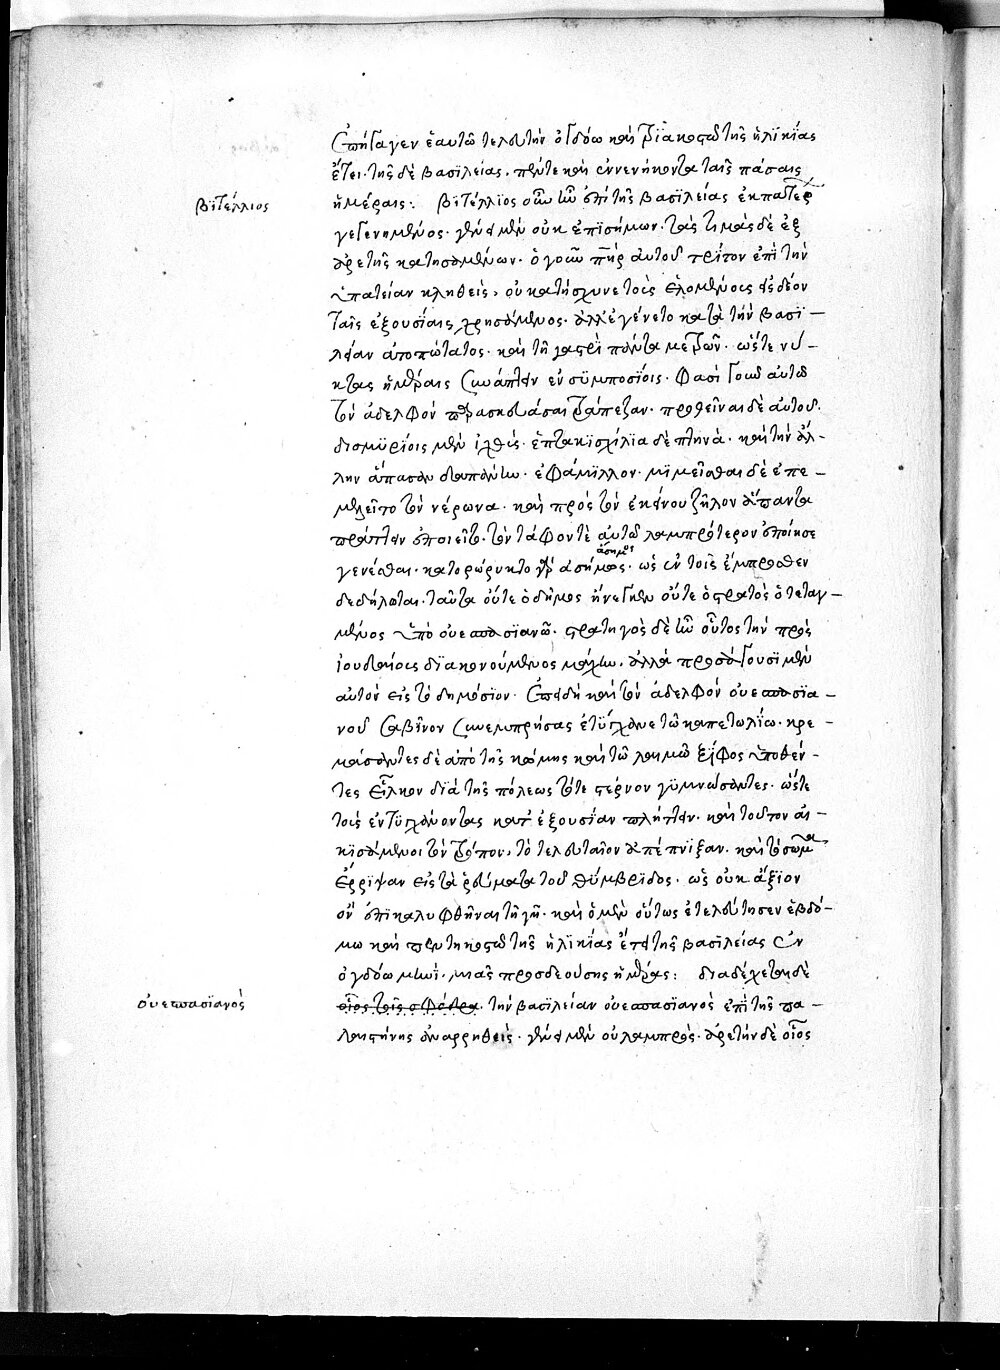 ἐπήγαγεν ἑαυτῶ τελευτὴν ὀγδόω καὶ τριακοστῶ τῆς ἡλικίας
ἔτει· τῆς δὲ βασιλείας, πέντε καὶ ἐννενήκοντα ταῖς πάσαις
βιτέλλιος
ἡμέραις: βιτέλλιος οὖν ὧν ἐπὶ τῆς βασιλείας ἐκ πατέρων
γεγενημένος· γένει μὲν οὐκ ἐπισήμων· τὰς τιμὰς δὲ ἐξ
ἀρετῆς κατησαμένων· ὁ γοῦν πῆρ αὐτοῦ τρίτον ἐπὶ τὴν
ὑπατείαν κληθεὶς, οὐ κατήσχυνε τοὺς ἑλομένους εἰς δέον
ταῖς ἐξουσίαις χρησάμενος· ἀλλ' ἐγένετο κατὰ τὴν βασι–
λείαν ἀπο πώτατος· καὶ τῆ γαστρὶ πάντα μετρῶν· ὥστε νύ–
κτας ἡμέραις συνάπτειν ἐν συμποσίοις· φασὶ γοῦν αὐτῶ
τὸν ἀδελφὸν παρασκευάσαι τράπεζαν· προθεῖναι δὲ αὐτοῦ
δισμυρίοις μὲν ἰχθῦς· ἑπτακισχίλια δὲ πτηνὰ· καὶ τὴν ἄλ–
λην ἅπασαν δαπάνην· ἐφάμιλλον· μιμεῖσθαι δὲ ἐπε–
μελεῖτο τὸν νέρωνα· καὶ πρὸς τὸν ἐκείνου ζῆλον ἅπαντα
πράττειν ἐποιεῖτο· τὸν τάφον τὲ αὐτῶ λαμπρότερον ἐποίησε
ἀσήμως
γενέσθαι· κατορώρυκτο γὰρ ἀσήμως· ὡς ἐν τοῖς ἔμπροσθεν
δεδήλωται· ταῦτα οὔτε ὁ δῆμος ἤνεγκεν οὔτε ὁ στρατὸς ὁ τεταγ–
μένος ὑπὸ οὐεσπασιανῶ· στρατηγὸς δὲ ἦν οὗτος τὴν πρὸς
ἰουδαίους διακονούμενος μάχην· ἀλλὰ προσάγουσι μὲν
αὐτὸν εἰς τὸ δημόσιον· ἐπειδὴ καὶ τὸν ἀδελφὸν οὐεσπασια–
νοῦ σαβῖνον συνεμπρήσας ἐτύγχανε τῶ καπετωλίω· κρε–
μάσαντες δὲ ἀπὸ τῆς κόμης καὶ τῶ λαιμῶ ξίφος ὑποθέν–
τες εἷλκον διὰ τῆς πόλεως τότε στέρνον γυμνώσαντες· ὥστε
τοὺς ἐντυγχάνοντας κατ' ἐξουσίαν πλήττειν· καὶ τοῦτον αἰ–
κισάμενοι τὸν τρόπον, τὸ τελευταῖον ἀπέπνιξαν· καὶ τὸ σῶμα
ἔρριψαν εἰς τὰ ῥεύματα τοῦ θύμβριδος· ὡς οὐκ ἄξιον
ὂν ἐπικαλυφθῆναι τῆ γῆ· καὶ ὁ μὲν οὕτως ἐτελεύτησεν ἑβδό–
μω καὶ πεντηκοστῶ τῆς ἡλικίας ἔτει τῆς βασιλείας ἐν
ὀγδόω μηνὶ· μιᾶς προσδεούσης ἡμέρας: διαδέχεται δὲ
οὐεσπασιανὸς
οἷος τοῖς σφόδρα· τὴν βασιλείαν οὐεσπασιανὸς ἐπὶ τῆς πα–
λαιστίνης ἀναρρηθεὶς· γένει μὲν οὐ λαμπρὸς· ἀρετὴν δὲ οἷος